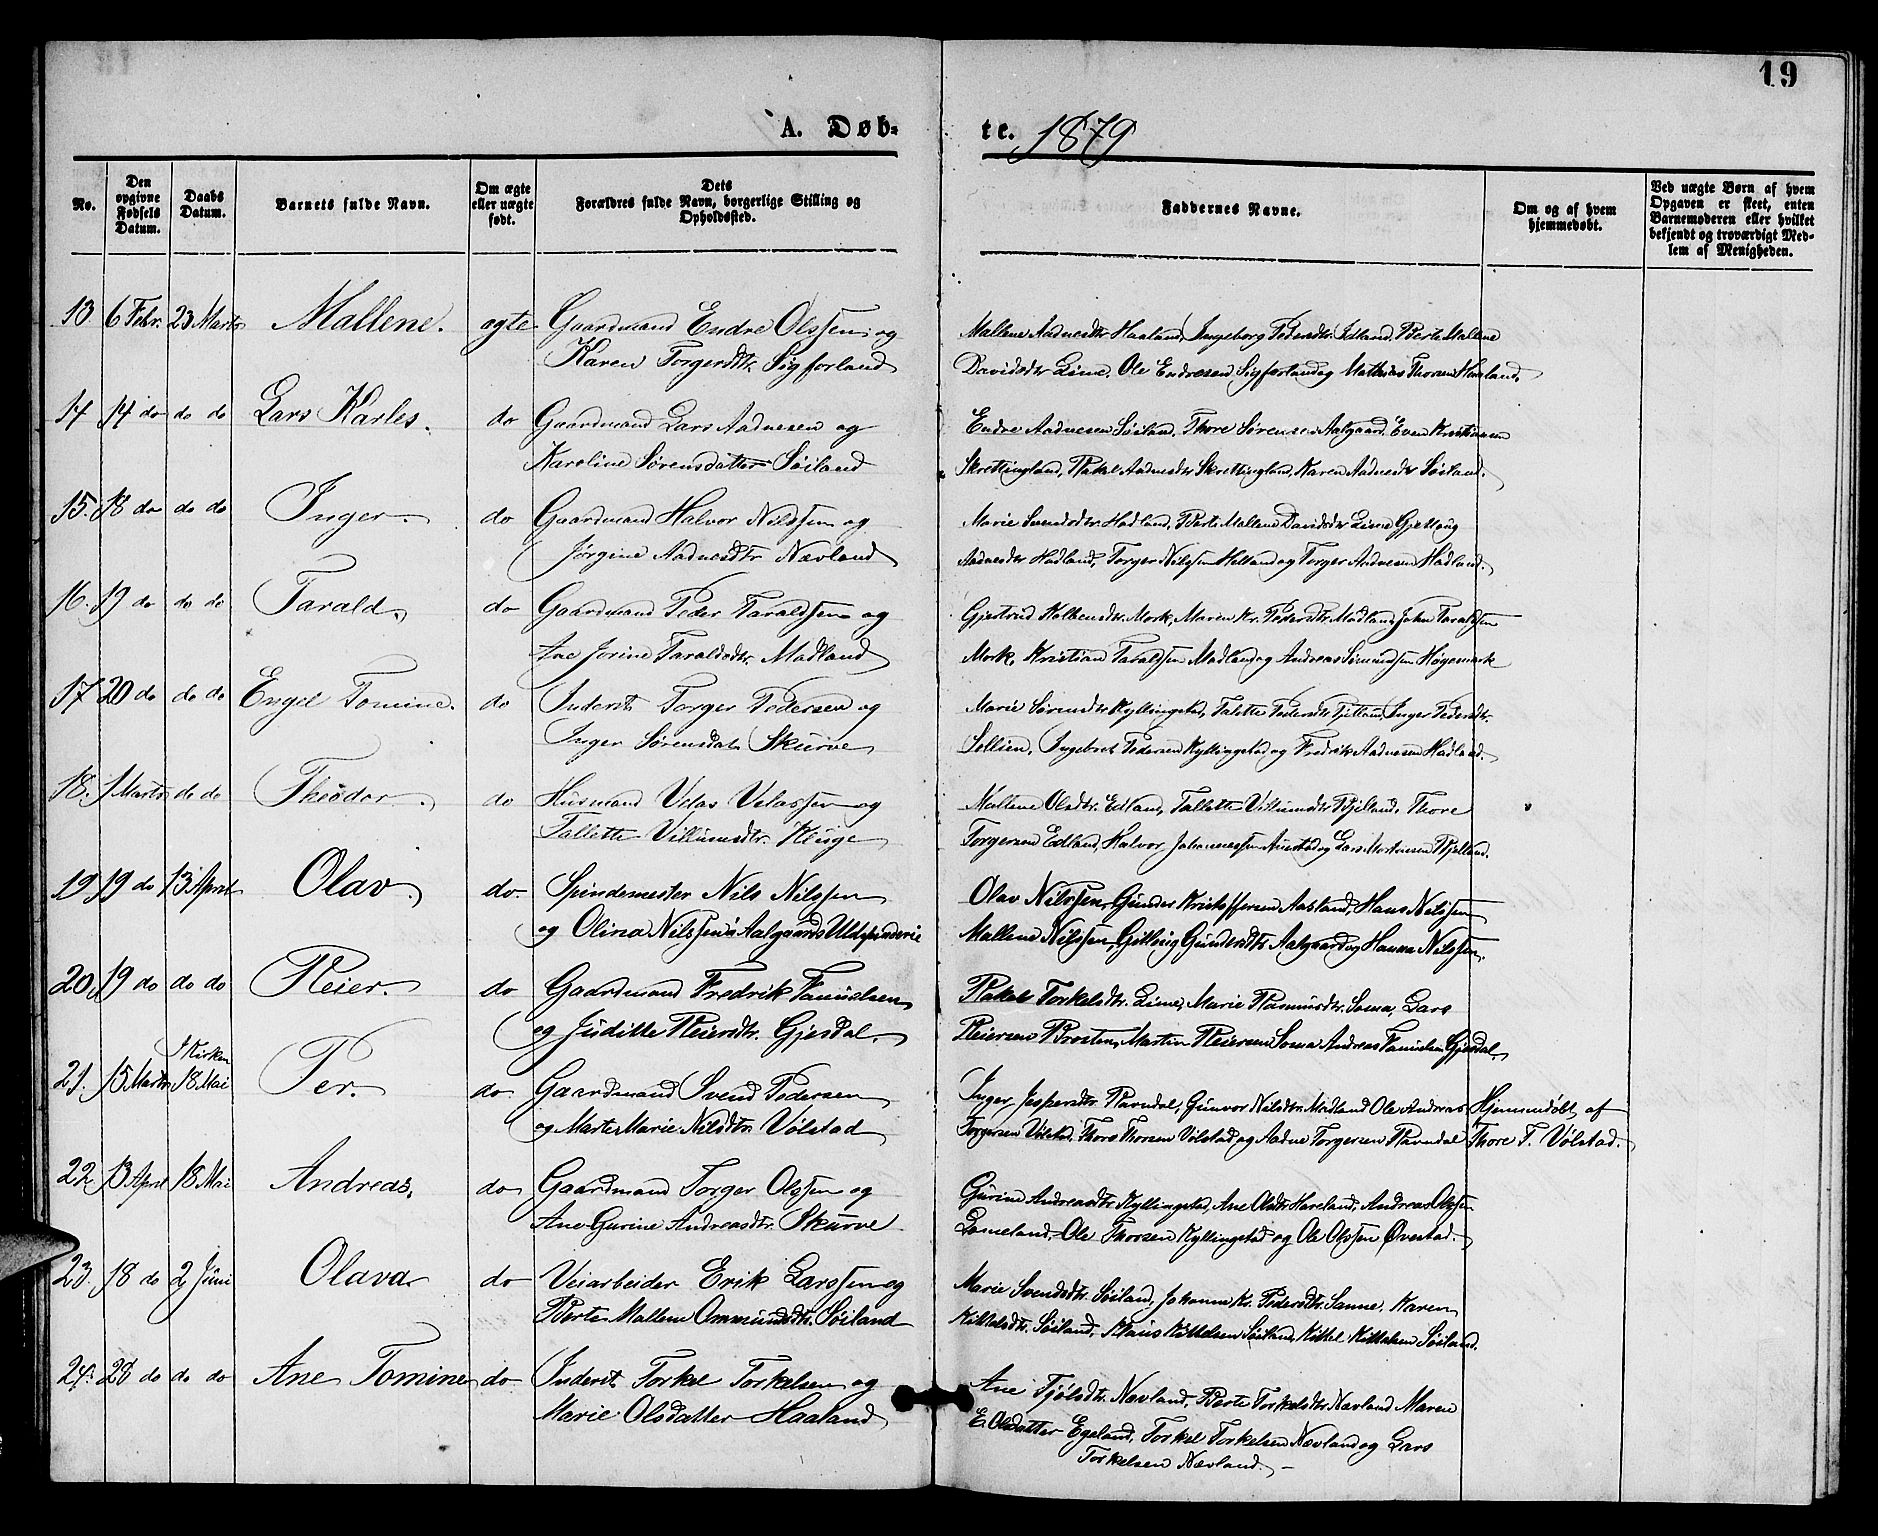 19
A. Døb-
te. 1879
No.
Den opgivne Fødsels Datum.
Daabs Datum.
Barnets fulde Navn.
Om ægte eller uægte født.
Dets Forældres fulde Navn, borgerlige Stilling og Opholdssted.
Faddernes Navne.
Om og af hvem hjemmedøbt.
Ved uægte Børn af hvem Opgaven er skeet, enten Barnemoderen eller hvilket bekjendt og troværdigt Medlem af Menigheden.
13 6 Febr. 23 Marts Mallene. ægte Gaardmand Endre Olssen og
Karen Torgersdtr. Sigforland
Mallene Aadnesdtr Haaland, Ingeborg Pedersdtr. Edland, Berte Mallene
Davidsdtr Lime, Ole Endresen Sigforland og Mathias Thorsen Haaland.
14 14 do do do Lars Karles. do Gaardmand Lars Aadnesen og
Karoline Sørensdatter Søiland
Endre Aadnesen Søiland, Thore Sørensen Aalgaard, Even Kristiansen
Skrettingland, Rakel Aadnesdtr Skrettingland, Karen Aadnesdtr Søiland.
15. 18 do do do Inger. do Gaardmand Halvor Nilssen og
Jørgine Aadnesdtr. Nævland
Marie Svendsdtr. Hadland, Berte Mallene Davidsdtr Lime
Aadnesdtr Hadland, Torger Nilssen Helland og Torger Aadnesen Hadland.
16. 19 do do do Tarald. do Gaardmand Peder Taraldsen og
Ane Jorine Taraldsdtr. Madland
Gjertrud Kolbensdtr. Mork, Maren Kr. Pedersdtr. Madland, John Taraldsen
Mork, Kristian Taraldsen Madland og Andreas Simundsen Høgemork
17. 20 do do do Engel Tomine. do Inderst Torger Pedersen og
Inger Sørensdat. Skurve
Marie Sørensdtr Kyllingstad, Talette Pedersdtr Fjetland, Inger Pedersdtr.
Sellien, Ingebret Pedersen Kyllingstad og Fredrik Aadnesen Hadland.
18. 1 Marts do do Theodor. do Husmand Velas Velassen og
Tallette Villumsdtr. Kluge
Mallene Olsdtr. Edland, Tallette Villumsdtr. Bjelland, Thore
Torgersen Edland, Halvor Johannessen Auestad og Lars Mortensen Bjelland.
19. 19 do 13 April Olav. do Spindemester Nils Nilssen
og Olina Nilssen's Aalgaards Uldspinderie
Olav Nilssen, Gunder Kristoffersen Aasland, Hans Nilssen
Mallene Nilssen, Gitlaug Gundersdtr Aalgaard og Hanna Nilssen.
20. 19 do do do Reier. do Gaardmand Fredrik Tønnessen
og Juditte Reiersdtr. Gjesdal.
Rakel Torkelsdtr. Lime, Marie Rasmusdtr. Soma, Lars
Reiersen Brosten, Martin Reiersen Soma Andreas Gjesdal.
21. 15 Marts I Kirken 18 Mai Per. do Gaardmand Svend Pedersen
og Marte Marie Nilsdtr. Vølstad
Inger Jespersdtr. Ravndal, Gunvor Nilsdtr. Madland Ole Andreas
Torgersen Vølstad, Thore Thorsen Vølstad og Aadne Torgersen Ravndal
Hjemmedøbt af
Thore T. Vølstad.
22. 13 April 18 Mai Andreas. do Gaardmand Torger Olssen og
Ane Gurine Andreasdtr. Skurve
Gurine Andreasdtr. Kyllingstad, Ane Olsdtr Haveland, Andreas Olssen
Lomeland, Ole Thorsen Kyllingstad og Ole Olssen Øvestad.
23. 18 do 2 Juni Olava do Veiarbeider Erik Larssen og
Berte Mallene Ommundsdtr. Søiland
Marie Svendsdtr. Søiland, Johanne Kr. Pedersdtr. Sanne, Karen
Kittelsdtr. Søiland, Klaus Kittelsen Søiland, Kittel Kittelsen Søiland.
24. 28 do do do Ane Tomine do Inderst Torkel Torkelsen og
Marie Olsdatter Haaland
Ane Fjølsdtr. Nævland, Berte Torkelsdtr Nævland Maren
E. Olsdatter Egeland, Torkel Torkelsen Nævland og Lars
Torkelsen Nævland.